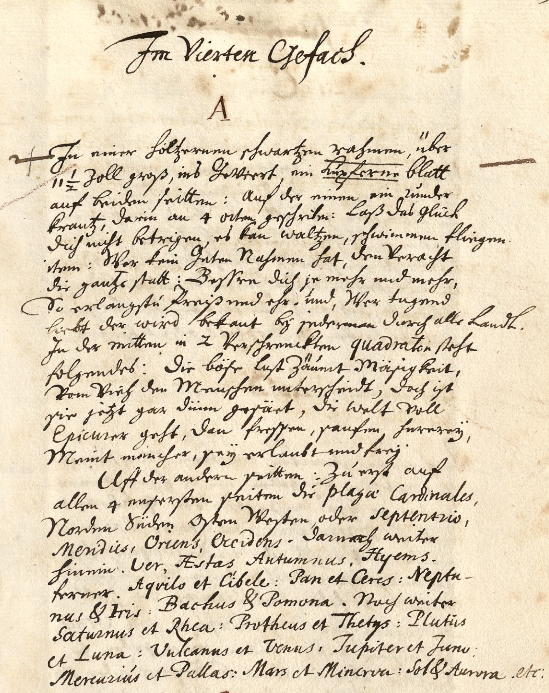 Im Vierten Gefach.
A
In einer höltzernen schwartzen rahmen, über
11 1/2 Zoll groß, ins Gevierdt, ein kupferne blatt
auf beiden seitten: Auf der einen, ein runder
krantz, darin an 4 orten geschriben: Laß das glück
dich nicht betrigen, es kan waltzen, schwimmen fliegen.
item: Wer kein guten Nahmen hat, den veracht
die gantze statt: Bessere dich je mehr und mehr,
So erlangstu Preiß und ehr. und, Wer tugend
liebt der wird bekant bey jederman durch alle Landt.
In der mitten in 2 Verschrenckten quadraten steht
folgendes: Die böse lust zäumt Mäsigkeit,
Vom Vieh den Menschen unterscheidt, doch ist
sie jetzt gar dünn gesäet, die welt voll
Epicurer geht, dan fressen, sauffen, hurerey,
Meint mancher, sey erlaubt und frey.
Uff der andern seitten: Zu erst auf
allen 4 eusersten seiten die plagæ Cardinales,
Norden Süden Osten Westen oder Septentrio,
Meridies, Oriens, Occidens. darnach weiter
hinein. Ver, Æstas Autumnus, Hyems.
ferner. Aquilo et Cibele: Pan et Ceres: Neptu-
nus & Iris: Bachus & Pomona. Noch weiter
Saturnus et Rhea: Protheus et Thetys: Plutus
et Luna: Vulcanus et Venus: Jupiter et Juno:
Mercurius et Pallas: Mars et Minerva: Sol & Aurora etc.